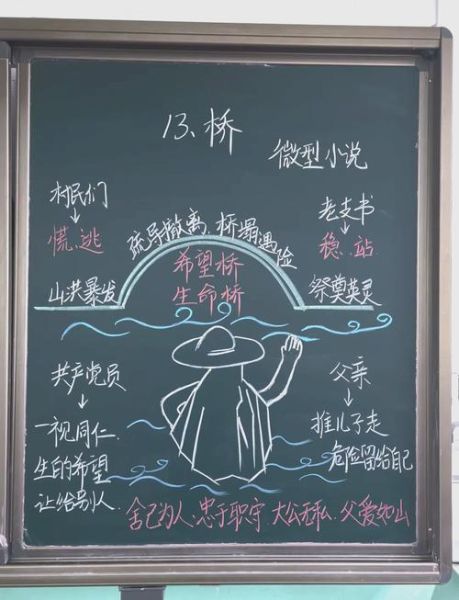 13、桥
微型小说
村民们
↓
慌.逃
老支书
↓
稳.站
疏导撤离 桥塌遇险
希望桥
生命桥
山洪暴发
祭奠英灵
共产党员
↓
一视同仁.
生的希望
让给别人.
父亲
↓
推儿子走
危险留给自己
舍己为人.忠于职守 大公无私.父爱如山